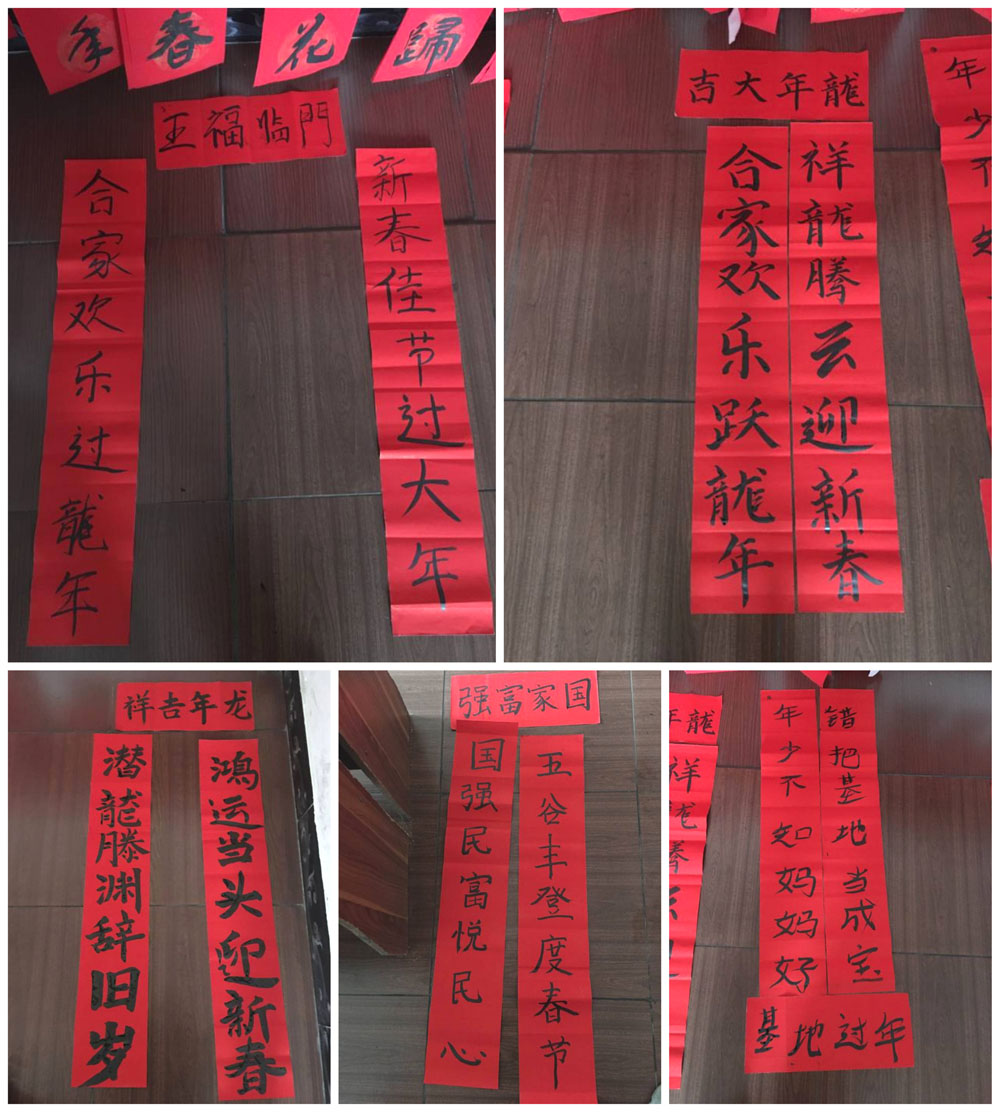 年春花歸
五福临門
合家欢乐过龍年
新春佳节过大年
吉大年龍
合家欢乐跃龍年
祥龍腾云迎新春
年少不知
祥吉年龙
潜龍滕渊辞旧岁
鴻运当头迎新春
强富家国
国强民富悦民心
五谷丰登度春节
年龍
祥
年少不知妈妈好
错把基地当成宝
基地过年